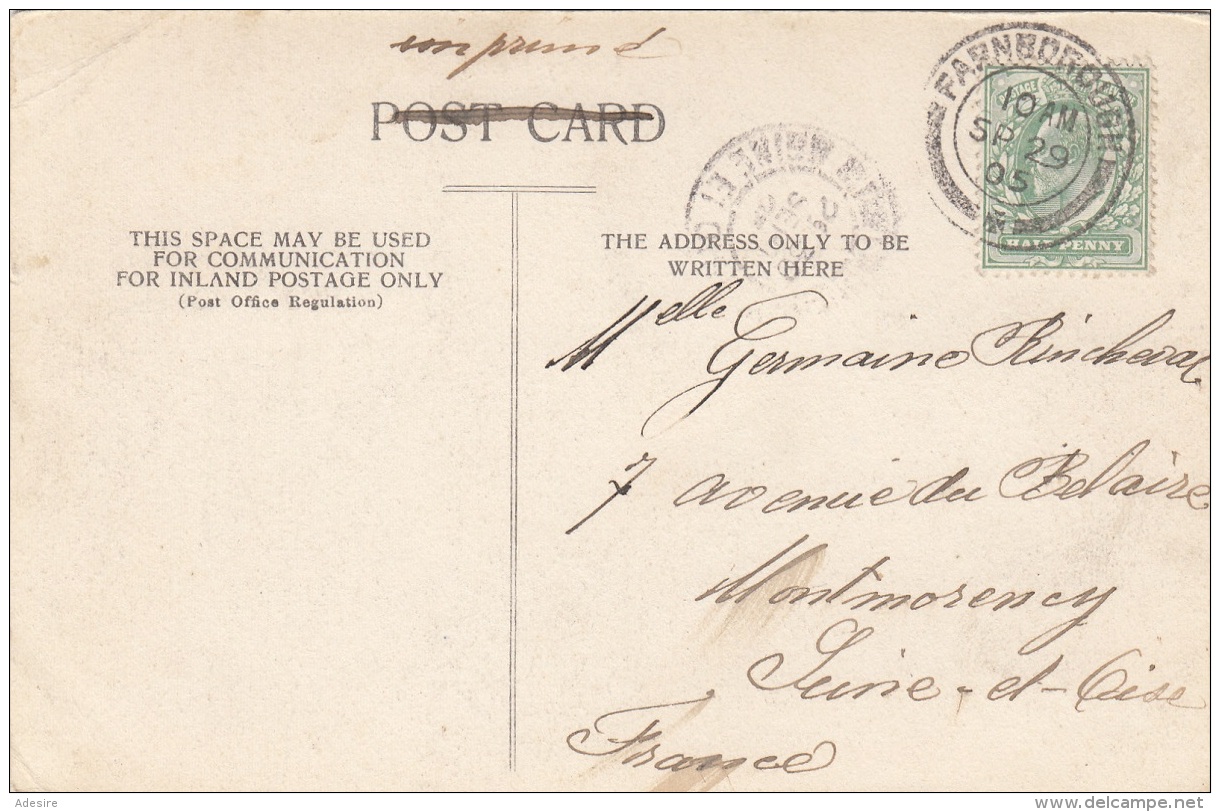 imprimé
POST CARD
FARNBOROUGH
10 AM
SP 29
05
HALFPENNY
THIS SPACE MAY BE USED
FOR COMMUNICATION
FOR INLAND POSTAGE ONLY
(Post Office Regulation)
THE ADDRESS ONLY TO BE
WRITTEN HERE
Melle Germaine Rincheval
7 avenue du Belaire
Montmorency
Seine-et-Oise
France
Adesire